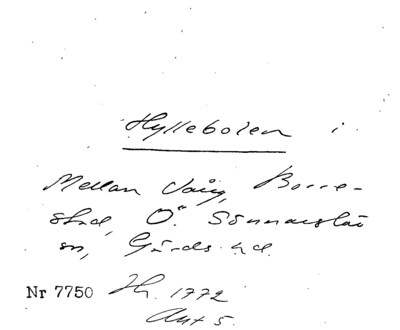 Hyllebolen i
Mellan Vång, Borre-
stad, Ö. Sönnarslöv
sn, Gärds hd.
Nr 7750 Hr. 1772
Akt 5.